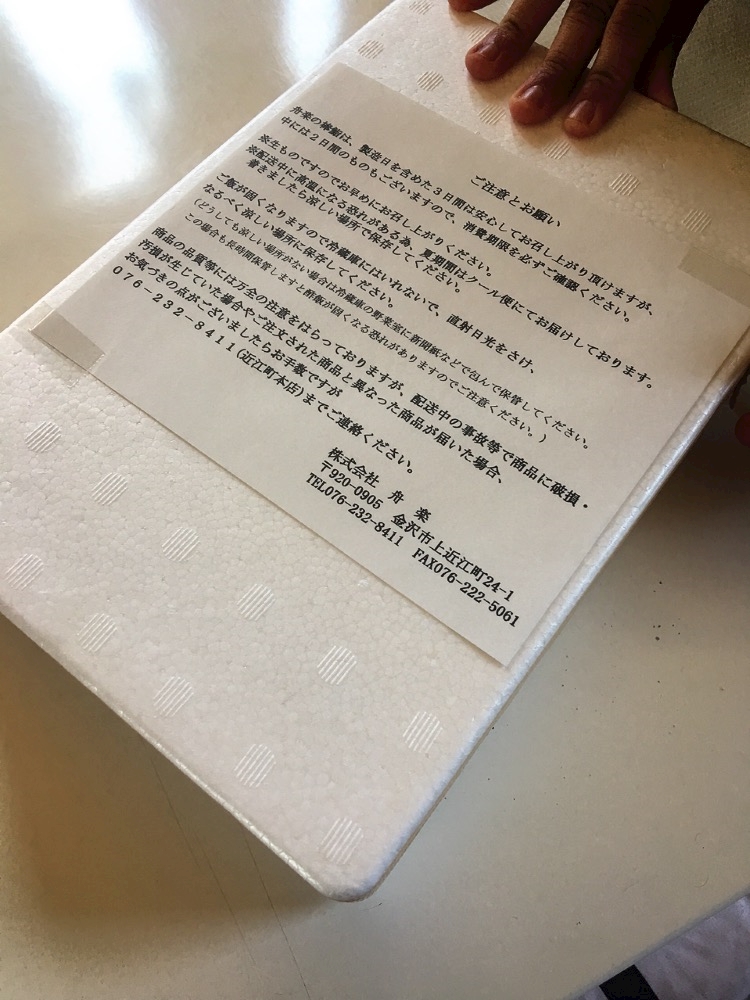 ご注意とお願い
舟楽の棒鮨は、製造日を含めた3日間は安心してお召し上がり頂けますが、
中には2日間のものもございますので、消費期限を必ずご確認ください。
※生ものですのでお早めにお召し上がりください。
※配送中に高温になる恐れがある為、夏期間はクール便にてお届けしております。
着きましたら涼しい場所で保存してください。
ご飯が固くなりますので冷蔵庫にはいれないで、直射日光をさけ、
なるべく涼しい場所に保存してください。
(どうしても涼しい場所がない場合は冷蔵庫の野菜室に新聞紙などで包んで保管してください。
この場合も長時間保管しますと酢飯が固くなる恐れがありますのでご注意ください。)
商品の品質等には万全の注意をはらっておりますが、配送中の事故等で商品に破損・
汚損が生じていた場合やご注文された商品と異なった商品が届いた場合、
お気づきの点がございましたらお手数ですが
076-232-8411(近江町本店)までご連絡ください。
株式会社 舟楽
〒920-0905 金沢市上近江町24-1
TEL076-232-8411 FAX076-222-5061